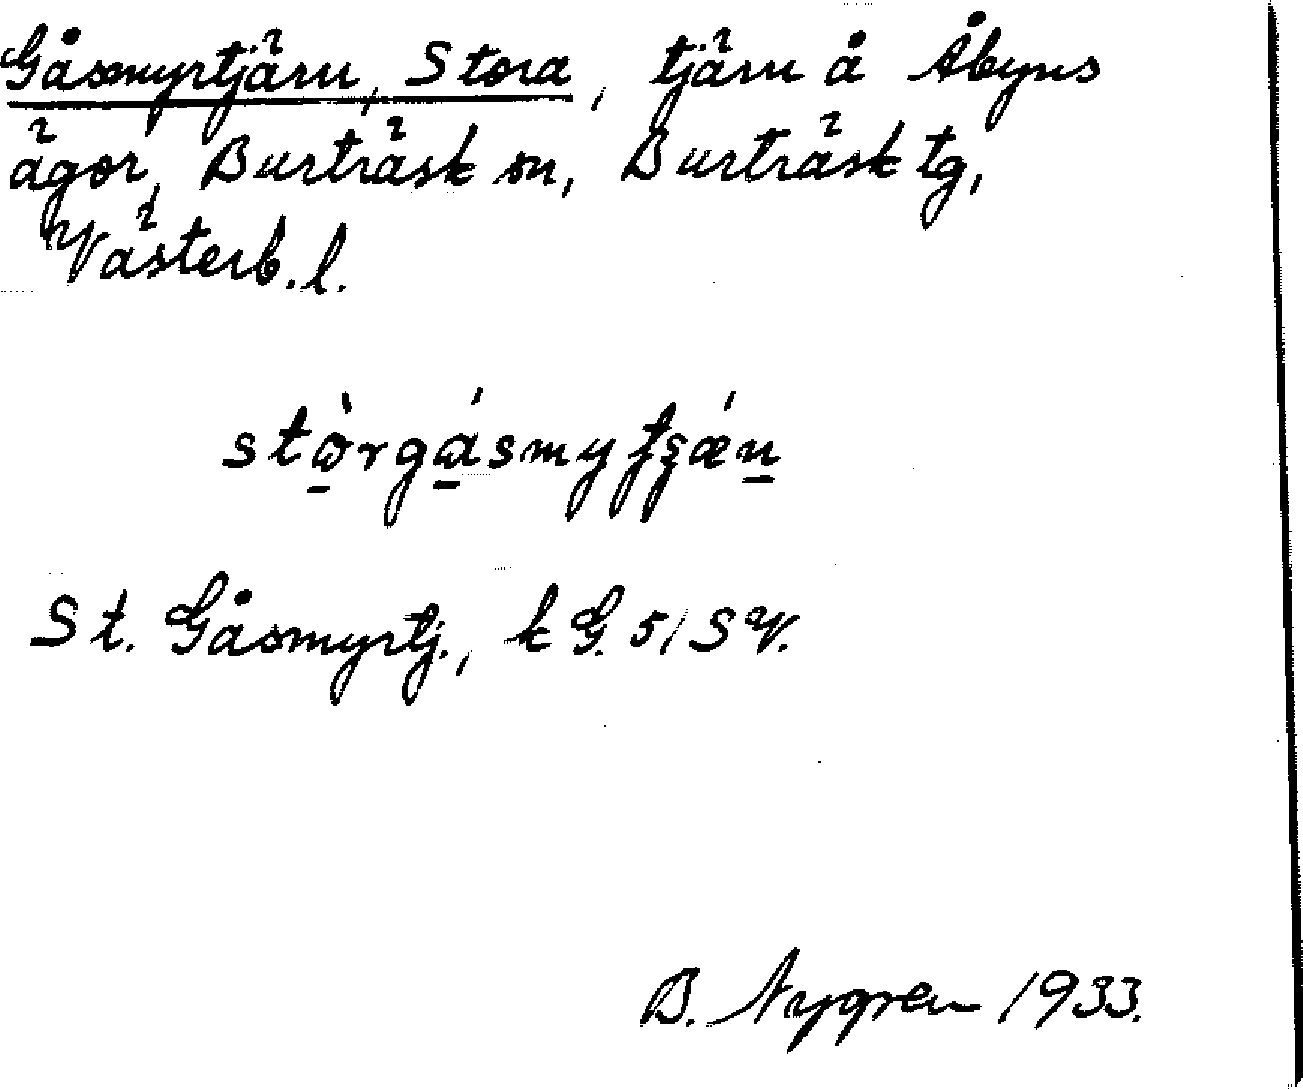 Gåsmyrtjärn, Stora, tjärn å Åbyns
ägor, Burträsk sn, Burträsk tg,
Västerb. l.
stò̱rgá̱smytʂǽṉ
St. Gåsmyrtj., k G. 51 SV.
B. Nygren 1933.